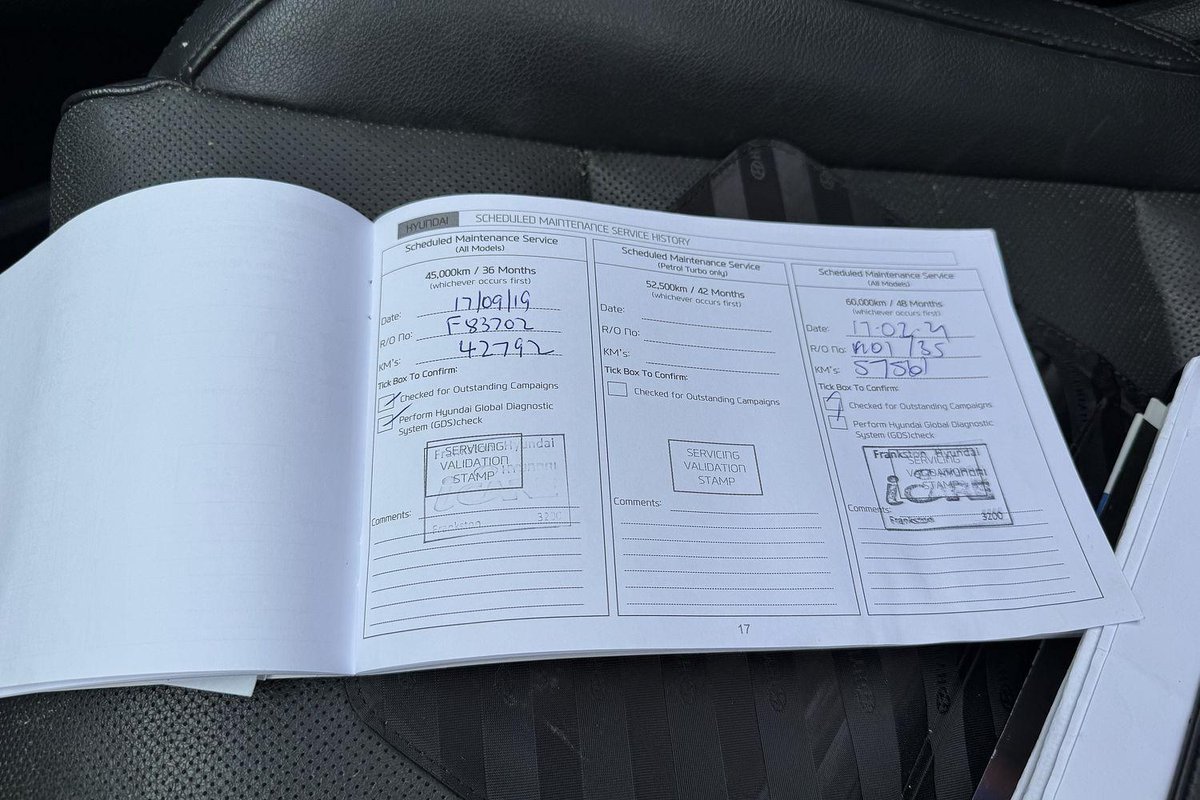 HYUNDAI SCHEDULED MAINTENANCE SERVICE HISTORY
Scheduled Maintenance Service
(All Models)
45,000km / 36 Months
(whichever occurs first)
Date: 17/09/19
R/O No: F83702
KM's: 42792
Tick Box To Confirm:
Checked for Outstanding Campaigns
Perform Hyundai Global Diagnostic
System (GDS)check
SERVICING
VALIDATION
STAMP
Frankston Hyundai
Frankston 3200
Comments:
Scheduled Maintenance Service
(Petrol Turbo only)
52,500km / 42 Months
(whichever occurs first)
Date:
R/O No:
KM's:
Tick Box To Confirm:
Checked for Outstanding Campaigns
SERVICING
VALIDATION
STAMP
Comments:
Scheduled Maintenance Service
(All Models)
60,000km / 48 Months
(whichever occurs first)
Date: 17-02-21
R/O No:
KM's: 57561
Tick Box To Confirm:
Checked for Outstanding Campaigns
Perform Hyundai Global Diagnostic
System (GDS)check
Frankston Hyundai
SERVICING
STAMP
iCARE
Frankston 3200
Comments:
17